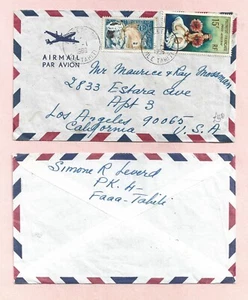 AIRMAIL
PAR AVION
15F
Mr Maurice & Ray
2833 Estara Ave
Apt 3
Los Angeles 90065
California U.S.A
Simone R
P.K. 4
Faaa-Tahiti